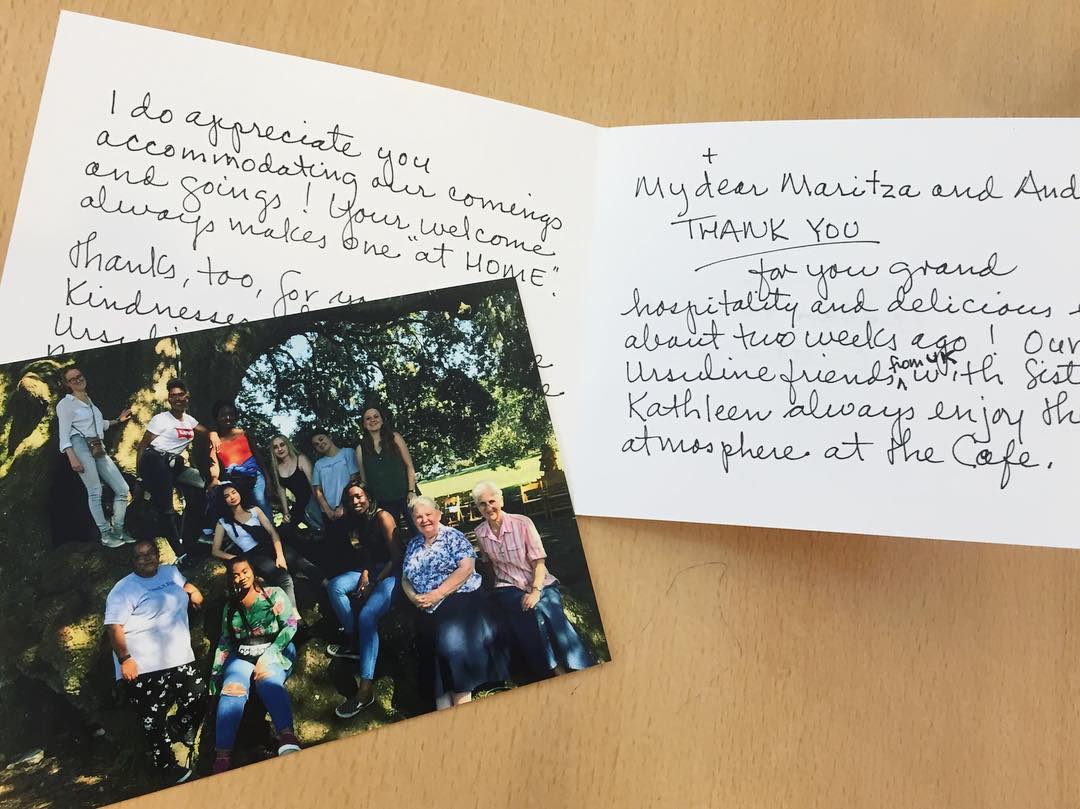 I do appreciate you
accommodating our comings
and goings! Your welcome
always makes one "at HOME".
Thanks, too, for
Kindnesse
+
My dear Maritza and And
THANK YOU
for you grand
hospitality and delicious
about two weeks ago! Our
Ursuline friends from UK with Sist
Kathleen always enjoy th
atmosphere at the Cafe.